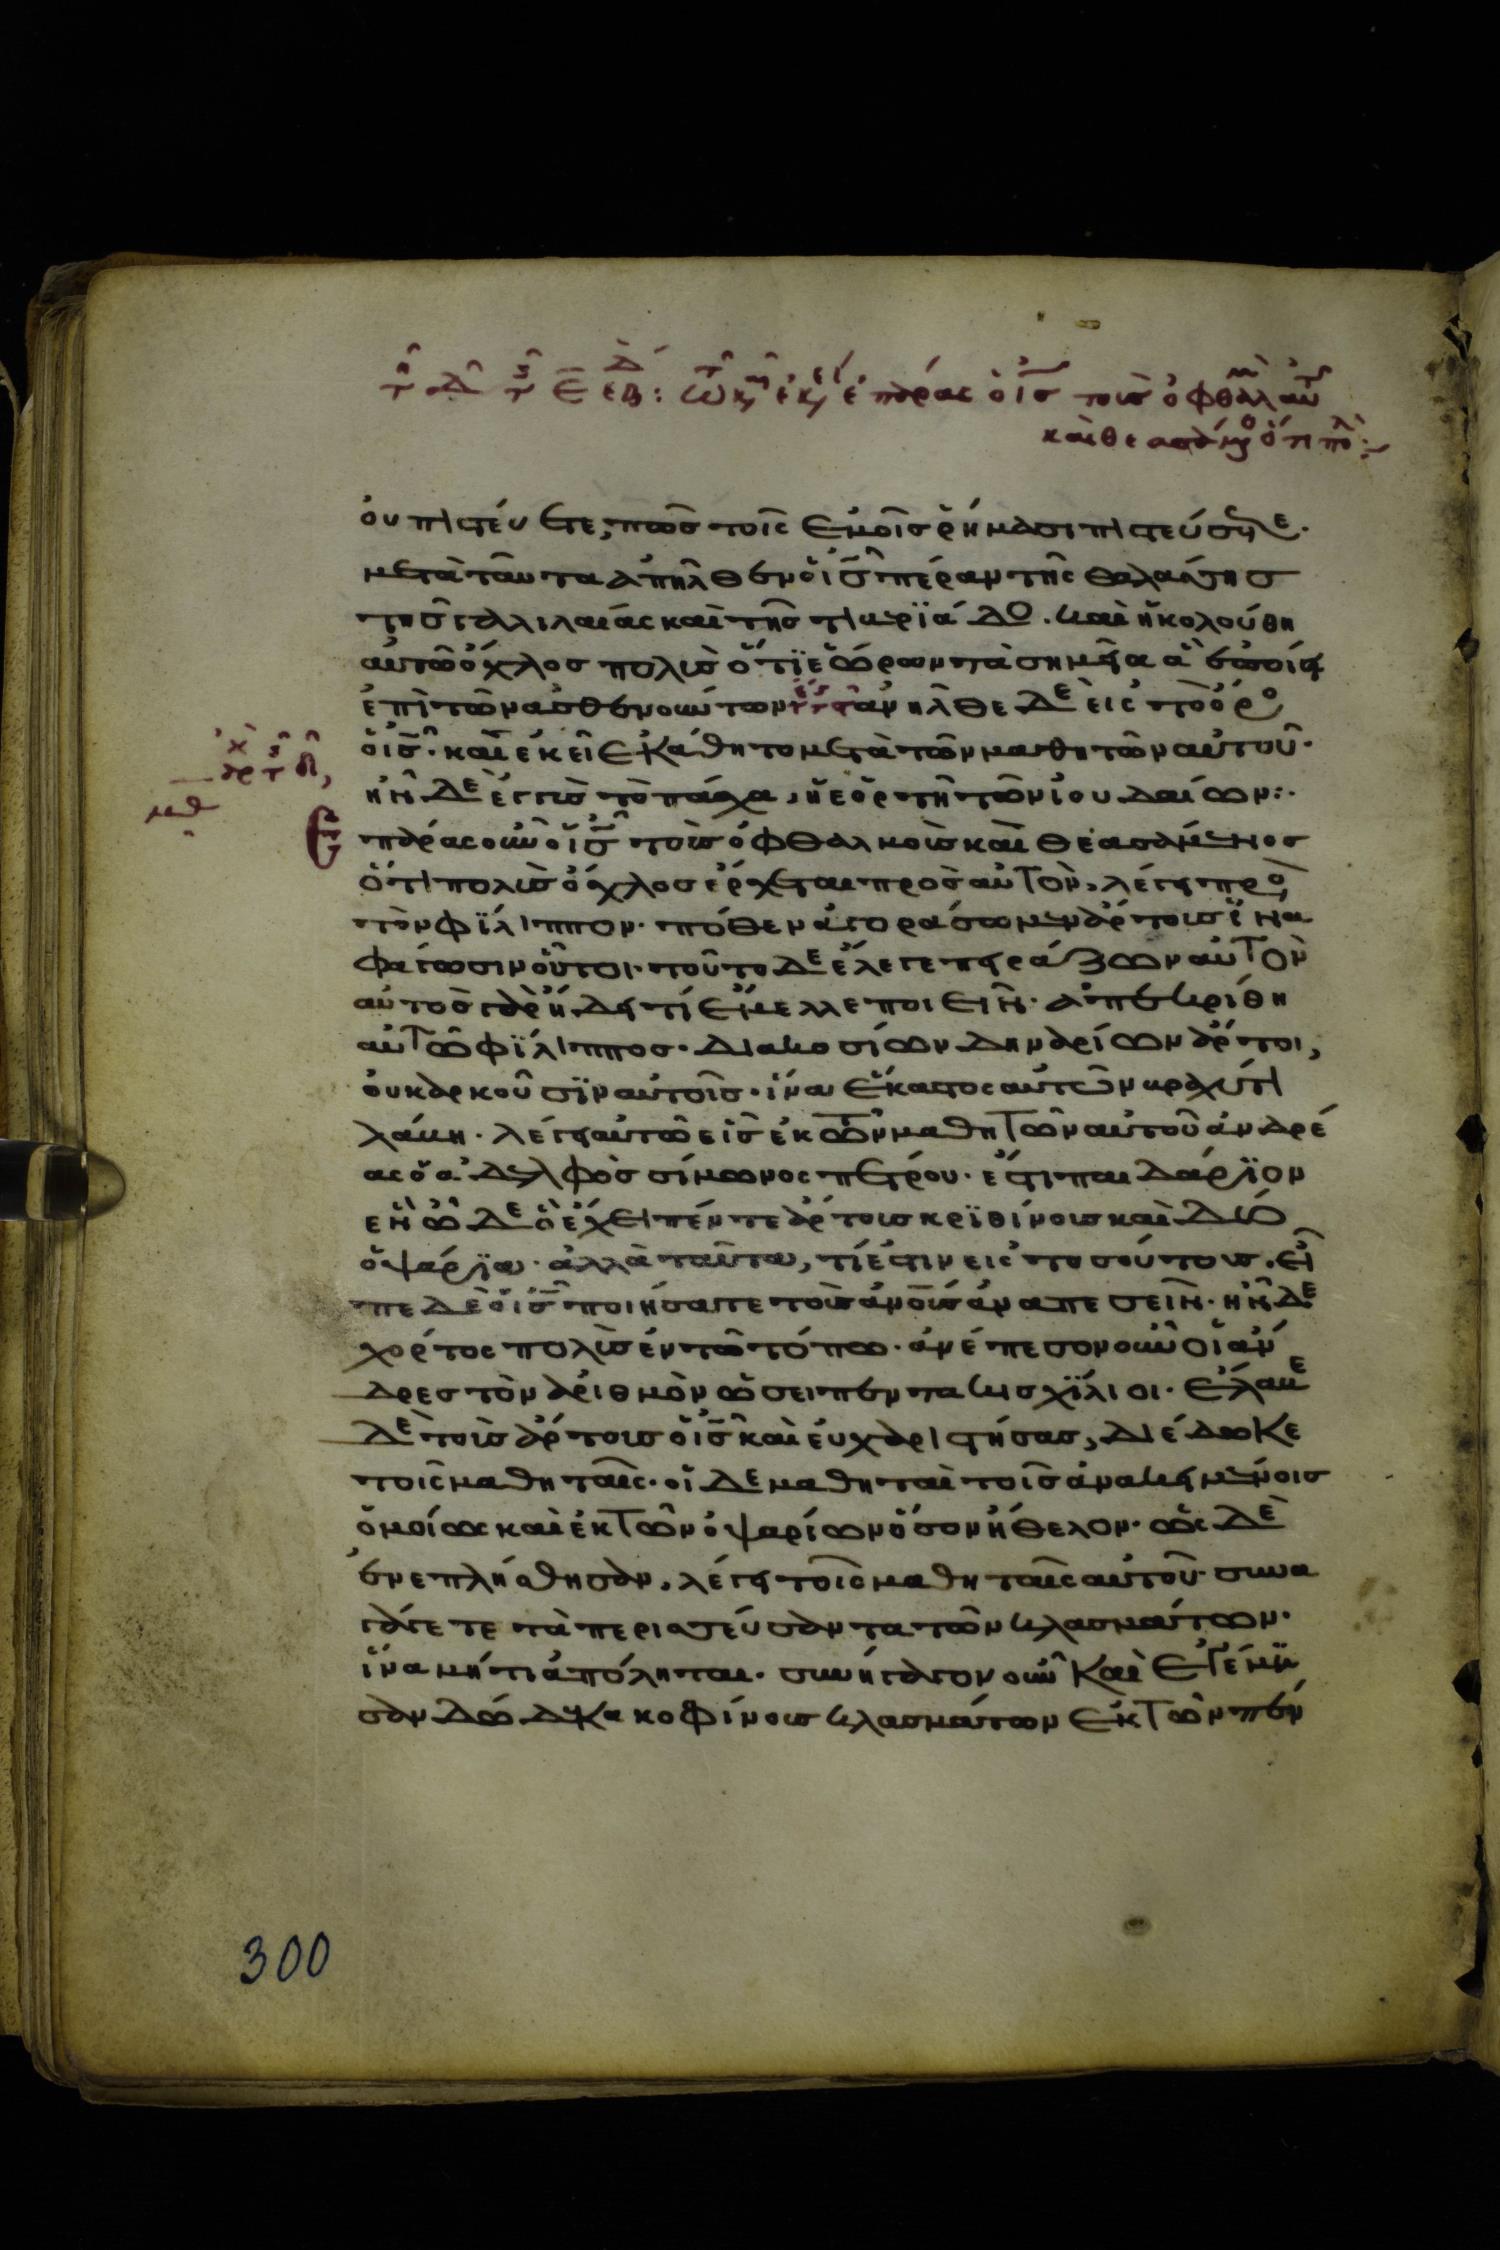 τη δ τησ ε εβδ: τω κω εκω επάρας ὁ ισ τους ὀφθαλμ αυτ
και θεασάμενο ὅτι πολ
ου πιστεύετε, πῶσ τοῖς ἐμοῖσ ῥήμασι πιστεύσητε·
μετὰ ταῦτα ἀπῆλθεν ὁ ισ πέραν τῆς θαλάσσησ
τησ γαλιλαίας καὶ τῆσ τιβεριάδο. καὶ ἠκολούθη
αυτῶ ὄχλοσ πολὺσ ὅτι ἑώρων τὰ σημεῖα ἃ ἐποίει
ἐπὶ τῶν ἀσθενούντων ἀνῆλθε δὲ εις τὸ ὄρο
ὁ ισ· καὶ ἐκεῖ ἐκάθητο μετὰ τῶν μαθητῶν αὐτοῦ·
ἦν δὲ ἐγγὺσ τὸ πάσχα, ἡ ἑορτὴ τῶν ἰουδαίων:·
Επάρας οῦν ὁ ισ τοὺσ ὀφθαλμοὺσ καὶ θεασάμενος
ὅτι πολὺσ ὄχλοσ ἔρχεται πρὸσ αὐτὸν, λέγει πρὸ
τὸν φίλιππον· πόθεν ἀγοράσωμεν ἄρτουσ ἵνα
φάγωσιν οὗτοι· τοῦτο δὲ ἔλεγε πειράζων αὐτὸν
αὐτὸσ γὰρ ἤδει τί ἔμελλε ποιεῖν· ἀπεκρίθη
αὐτῶ φίλιπποσ· διακοσίων δηναρίων ἄρτοι,
ουκ ἀρκοῦσιν αὐτοῖσ· ἵνα ἕκαστος αὐτῶν βραχύ τι
λάβη· λέγει αυτῶ εἷσ ἐκ τῶν μαθητῶν αὐτοῦ ἀνδρέ
ας ὁ ἀδελφὸσ σίμωνος πέτρου· ἔστι παιδάριον
ἓν ὧδε ὃ ἔχει πέντε ἄρτουσ κριθίνουσ καὶ δύο
ὀψάρια· ἀλλὰ ταῦτα, τί ἐστιν εις τοσούτουσ. εἶ
πε δὲ ὁ ισ ποιήσατε τοὺσ ἀνουσ ἀναπεσεῖν· ἦν δὲ
χόρτος πολὺσ ἐν τῶ τόπω· ἀνέπεσον οὖν οἱ ἄν
δρεσ τὸν ἀριθμὸν ὡσει πεντακισχίλιοι· ἔλαβε
δὲ τοὺσ ἄρτουσ ὁ ισ καὶ εὐχαριστήσασ, διέδωκε
τοῖς μαθηταῖς· οἱ δὲ μαθηταὶ τοῖσ ἀνακειμένοισ
ὁμοίως καὶ ἐκ τῶν ὀψαρίων ὅσον ἤθελον· ὡς δὲ
ἐνεπλήσθησαν, λέγει τοῖς μαθηταῖς αὐτοῦ· συνα
γάγετε τὰ περισσεύσαντα τῶν κλασμάτων·
ἵνα μή τι ἀπόληται· συνήγαγον οὖν καὶ ἐγέμι
σαν δώδεκα κοφίνουσ κλασμάτων ἐκ τῶν πέν
300